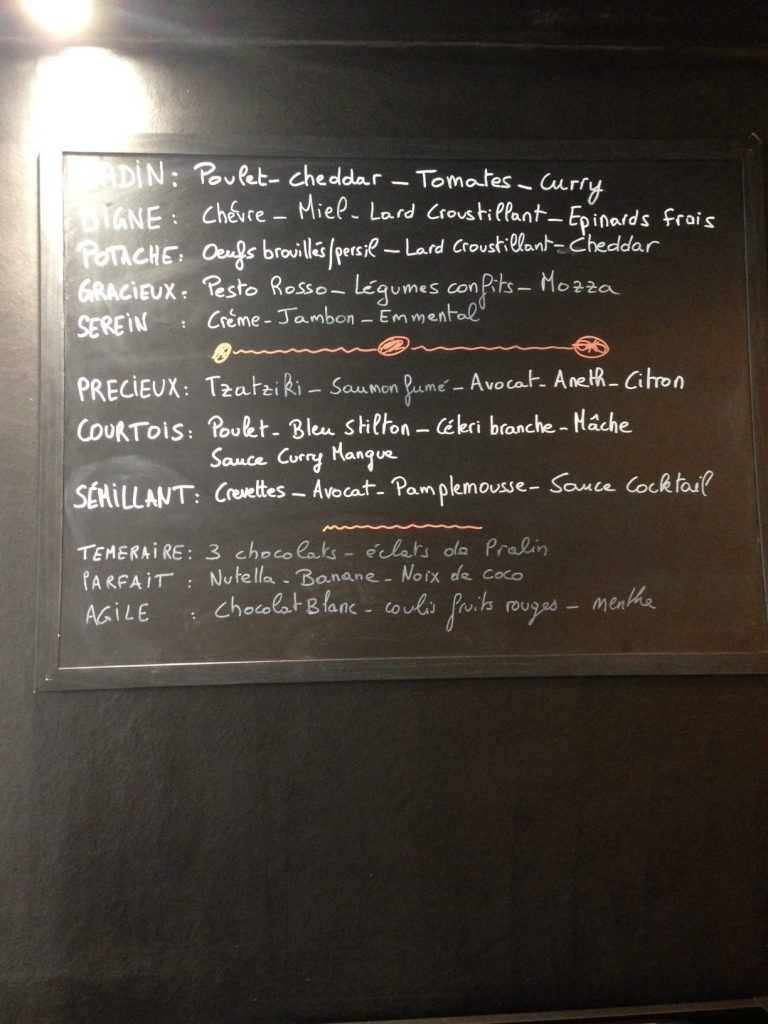 POULET- cheddar - Tomates - Curry
DIGNE : Chévre - Miel - Lard Croustillant - Epinards frais
POTACHE : Oeufs brouillés/persil - Lard Croustillant - Cheddar
GRACIEUX : Pesto Rosso - Légumes confits - Mozza
SEREIN : Créme - Jambon - Emmental
PRECIEUX : Tzatziki - Saumon fumé - Avocat - Aneth - Citron
COURTOIS : Poulet - Bleu Stilton - Céleri branche - Mâche
Sauce Curry Mangue
SÉMILLANT : Crevettes - Avocat - Pamplemousse - Sauce Cocktail
TEMERAIRE : 3 chocolats - éclats de Pralin
PARFAIT : Nutella - Banane - Noix de coco
AGILE : Chocolat Blanc - coulis fruits rouges - menthe